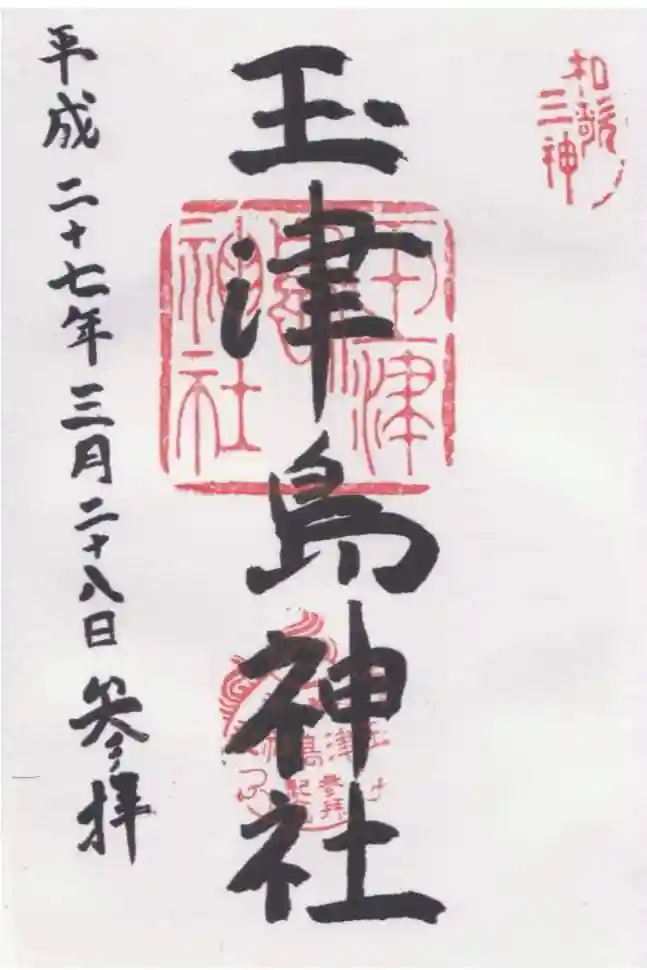 和歌
三神
玉津島神社
玉津
島
神社
参拝
平成二十七年三月二十八日参拝